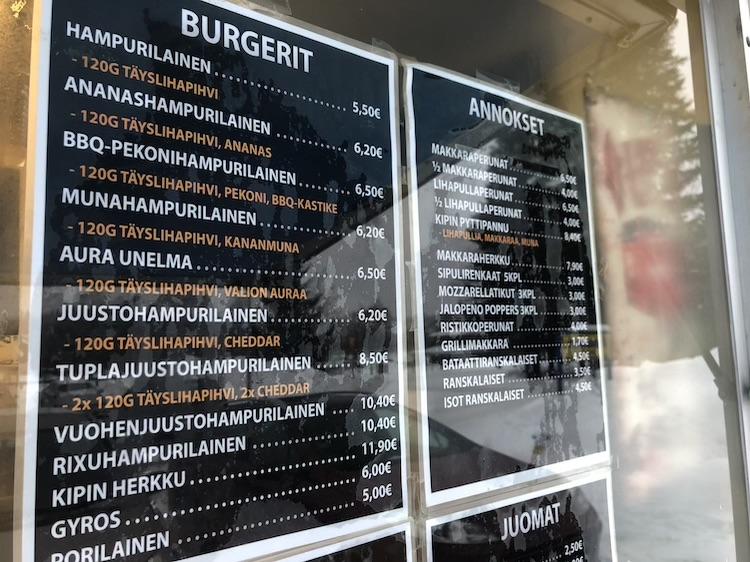 BURGERIT
HAMPURILAINEN 5,50€
- 120G TÄYSLIHAPIHVI
ANANASHAMPURILAINEN 6,20€
- 120G TÄYSLIHAPIHVI, ANANAS
BBQ-PEKONIHAMPURILAINEN 6,50€
- 120G TÄYSLIHAPIHVI, PEKONI, BBQ-KASTIKE
MUNAHAMPURILAINEN 6,20€
- 120G TÄYSLIHAPIHVI, KANANMUNA
AURA UNELMA 6,50€
- 120G TÄYSLIHAPIHVI, VALION AURAA
JUUSTOHAMPURILAINEN 6,20€
- 120G TÄYSLIHAPIHVI, CHEDDAR
TUPLAJUUSTOHAMPURILAINEN 8,50€
- 2x 120G TÄYSLIHAPIHVI, 2x CHEDDAR
VUOHENJUUSTOHAMPURILAINEN 10,40€
RIXUHAMPURILAINEN 10,40€
KIPIN HERKKU 11,90€
GYROS 6,00€
PORILAINEN 5,00€
ANNOKSET
MAKKARAPERUNAT 6,50€
½ MAKKARAPERUNAT 4,00€
LIHAPULLAPERUNAT 6,50€
½ LIHAPULLAPERUNAT 4,00€
KIPIN PYTTIPANNU 8,40€
- LIHAPULLIA, MAKKARAA, MUNA
MAKKARAHERKKU 7,90€
SIPULIRENKAAT 5KPL 3,00€
MOZZARELLATIKUT 3KPL 3,00€
JALOPENO POPPERS 3KPL 3,00€
RISTIKKOPERUNAT 4,00€
GRILLIMAKKARA 1,70€
BATAATTIRANSKALAISET 4,50€
RANSKALAISET 3,50€
ISOT RANSKALAISET 4,50€
JUOMAT
2,50€